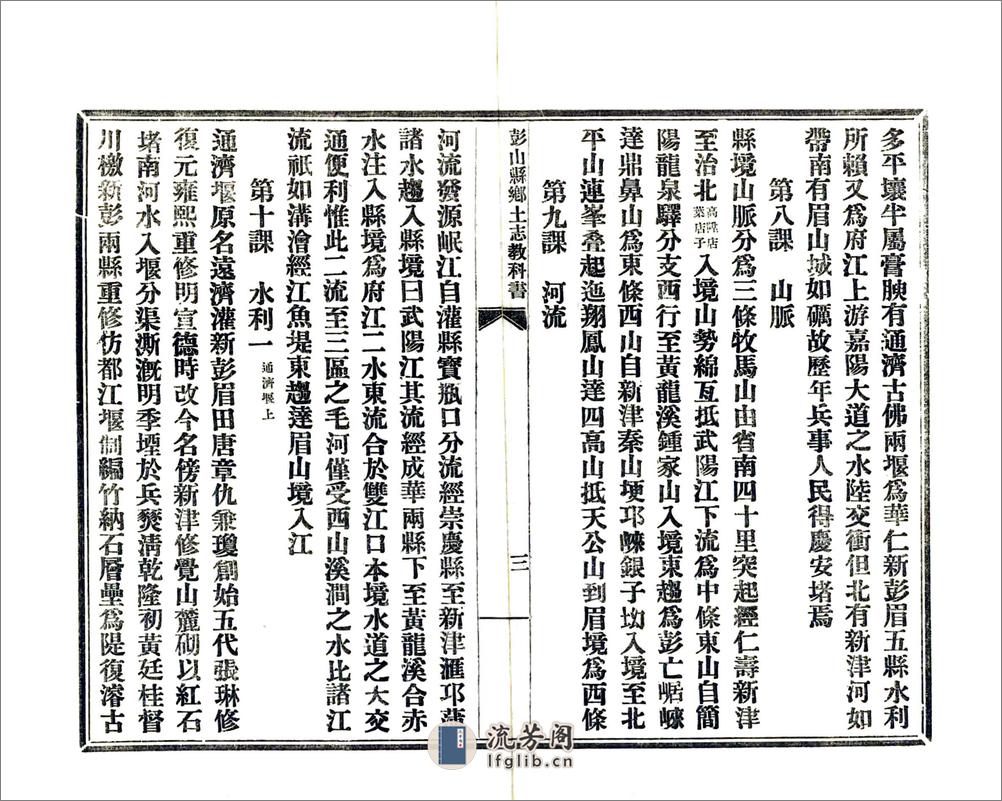 多平壤半屬膏腴有通濟古佛兩堰爲華仁新彭眉五縣水利
所賴又爲府江上游嘉陽大道之水陸交衝但北有新津河如
帶南有眉山城如礪故歷年兵事人民得慶安堵焉
第八課 山脈
縣境山脈分爲三條牧馬山由省南四十里突起經仁壽新津
至治北高店葉店子入境山勢綿亙抵武陽江下流爲中條東山自簡
陽龍泉驛分支西行至黃龍溪鍾家山入境東趨爲彭亡崌
達鼎鼻山爲東條西山自新津秦山埂邛崍銀子坳入境至北
平山連峯叠起迤翔鳳山達四高山抵天公山到眉境爲西條
第九課 河流
彭山縣鄉土志教科書
三
河流發源岷江自灌縣寶瓶口分流經崇慶縣至新津滙邛蒲
諸水趨入縣境曰武陽江其流經成華兩縣下至黃龍溪合赤
水注入縣境爲府江二水東流合於雙江口本境水道之大交
通便利惟此二流至三區之毛河僅受西山溪澗之水比諸江
流祇如溝澮經江魚堤東趨達眉山境入江
第十課 水利一 通濟堰上
通濟堰原名遠濟灌新彭眉田唐章仇兼瓊創始五代張琳修
復元雍熙重修明宣德時改今名傍新津修覺山麓砌以紅石
堵南河水入堰分渠澌漑明季堙於兵燹淸乾隆初黃廷桂督
川檄新彭兩縣重修仿都江堰制編竹納石層壘爲隄復濬古
流芳阁
lfglib.cn